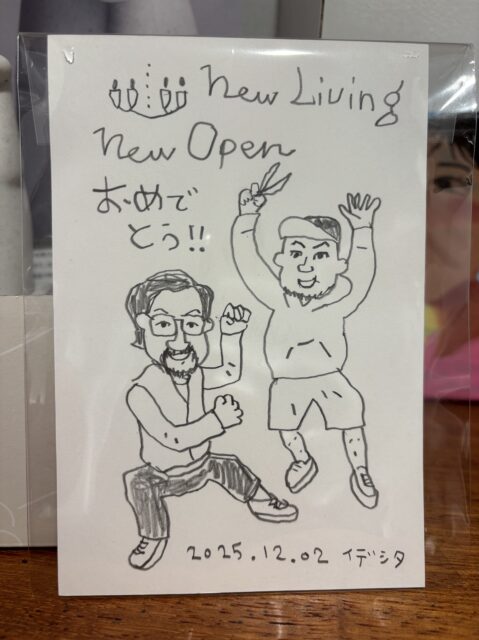 New Living
New Open
おめで
とう!!
2025.12.02 イデシタ